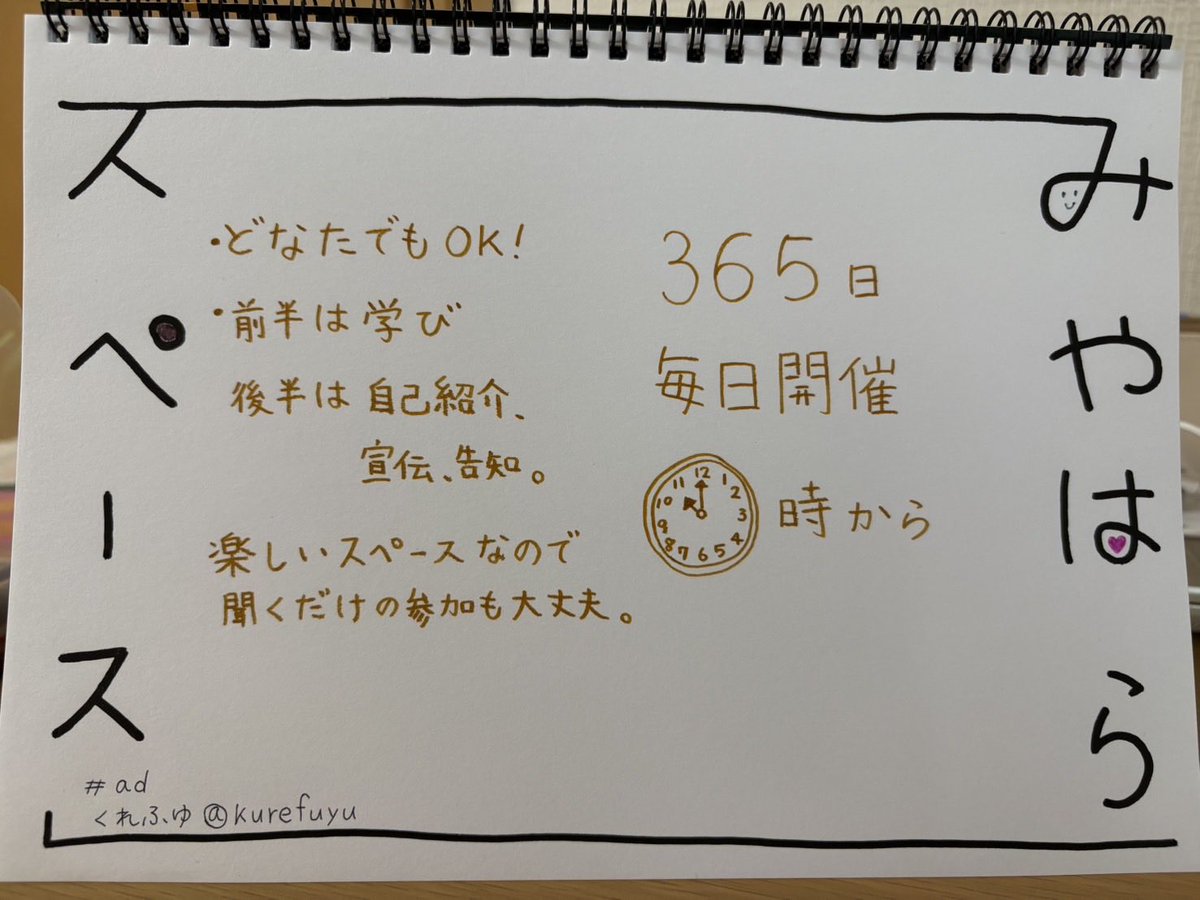 みやはら
スペース
365日
毎日開催
12
1
2
3
4
5
6
7
8
9
10
11
時から
・どなたでもOK!
・前半は学び
後半は自己紹介、
宣伝、告知。
楽しいスペースなので
聞くだけの参加も大丈夫。
#ad
くれふゆ@kurefuyu